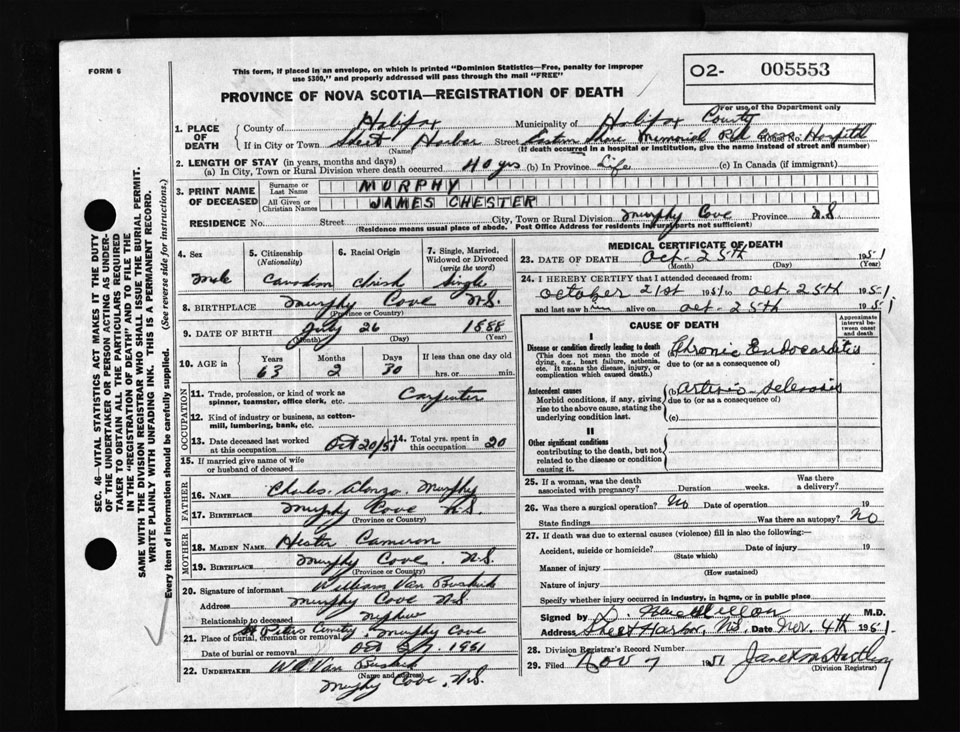 FORM 6
This form, if placed in an envelope, on which is printed "Dominion Statistics—Free, penalty for improper
use $300," and properly addressed will pass through the mail "FREE"
O2- 005553
For use of the Department only
PROVINCE OF NOVA SCOTIA—REGISTRATION OF DEATH
SEC. 46—VITAL STATISTICS ACT MAKES IT THE DUTY
OF THE UNDERTAKER OR PERSON ACTING AS UNDER-
TAKER TO OBTAIN ALL THE PARTICULARS REQUIRED
IN THE "REGISTRATION OF DEATH" AND TO FILE THE
SAME WITH THE DIVISION REGISTRAR WHO SHALL ISSUE THE BURIAL PERMIT.
WRITE PLAINLY WITH UNFADING INK. THIS IS A PERMANENT RECORD.
Every item of information should be carefully supplied. (See reverse side for instructions.)
1. PLACE OF DEATH
County of Halifax Municipality of Halifax County
If in City or Town Sheet Harbor Street Eastern Shore Memorial Red Cross Hospital
(Name) (If death occurred in a hospital or institution, give the name instead of street and number)
2. LENGTH OF STAY (in years, months and days)
(a) In City, Town or Rural Division where death occurred 40 yrs (b) In Province Life (c) In Canada (if immigrant)
3. PRINT NAME OF DECEASED
Surname or Last Name MURPHY
All Given or Christian Names JAMES CHESTER
RESIDENCE No. Street City, Town or Rural Division Murphy Cove Province N.S
(Residence means usual place of abode. Post Office Address for residents in rural parts not sufficient)
4. Sex Male
5. Citizenship (Nationality) Canadian
6. Racial Origin Irish
7. Single, Married, Widowed or Divorced (write the word) Single
8. BIRTHPLACE Murphy Cove N.S.
(Province or Country)
9. DATE OF BIRTH July 26 1888
(Month) (Day) (Year)
10. AGE in Years 63 Months 2 Days 30 If less than one day old hrs. or min.
OCCUPATION
11. Trade, profession, or kind of work as spinner, teamster, office clerk, etc. Carpenter
12. Kind of industry or business, as cotton-mill, lumbering, bank, etc.
13. Date deceased last worked at this occupation Oct 20/51
14. Total yrs. spent in this occupation 20
15. If married give name of wife or husband of deceased
FATHER
16. NAME Charles Alonzo Murphy
17. BIRTHPLACE Murphy Cove N.S.
(Province or Country)
MOTHER
18. MAIDEN NAME Hester Cameron
19. BIRTHPLACE Murphy Cove N.S
(Province or Country)
20. Signature of informant William Van Buskirk
Address Murphy Cove N.S.
Relationship to deceased nephew
21. Place of burial, cremation or removal St Peters Cemetry, Murphy Cove
Date of burial or removal Oct 27 1951
22. UNDERTAKER W A Van Buskirk
(Name and address)
Murphy Cove, N.S.
MEDICAL CERTIFICATE OF DEATH
23. DATE OF DEATH Oct. 25th 1951
(Month) (Day) (Year)
24. I HEREBY CERTIFY that I attended deceased from:
October 21st 1951 to Oct. 25th 1951
and last saw him alive on Oct. 25th 1951
CAUSE OF DEATH
Approximate interval between onset and death
I
Disease or condition directly leading to death
(This does not mean the mode of dying, e.g., heart failure, asthenia, etc. It means the disease, injury, or complication which caused death.)
(a) Chronic Endocarditis
due to (or as a consequence of)
Antecedent causes
Morbid conditions, if any, giving rise to the above cause, stating the underlying condition last.
(b) arterio sclerosis
due to (or as a consequence of)
(c)
II
Other significant conditions
contributing to the death, but not related to the disease or condition causing it.
25. If a woman, was the death associated with pregnancy? Duration weeks. Was there a delivery?
26. Was there a surgical operation? No Date of operation 19
State findings Was there an autopsy? No
27. If death was due to external causes (violence) fill in also the following:—
Accident, suicide or homicide? Date of injury 19
(State which)
Manner of injury
(How sustained)
Nature of injury
Specify whether injury occurred in industry, in home, or in public place
Signed by D. MacMillan M.D.
Address Sheet Harbor, N.S. Date Nov. 4th 1951
28. Division Registrar's Record Number
29. Filed Nov 7 1951 Janet M Hartling
(Division Registrar)